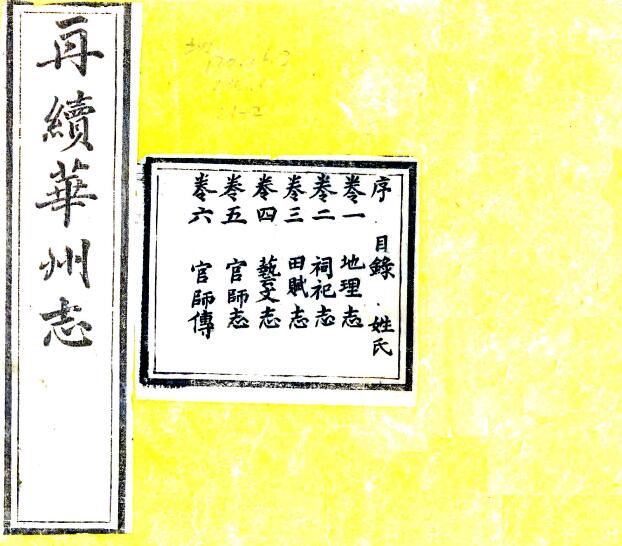 再續華州志
序 目錄 姓氏
卷一 地理志
卷二 祠祀志
卷三 田賦志
卷四 藝文志
卷五 官師志
卷六 官師傳